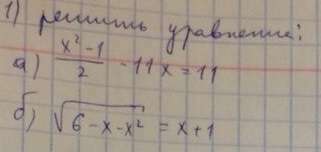 1) решить уравнение:
а) (x² - 1)/2 - 11x = 11
б) √(6 - x - x²) = x + 1